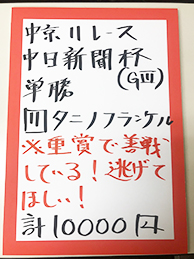 中京11レース
中日新聞杯
(GIII)
単勝
11 タニノフランケル
※重賞で善戦
している!逃げて
ほしい!
計10000円